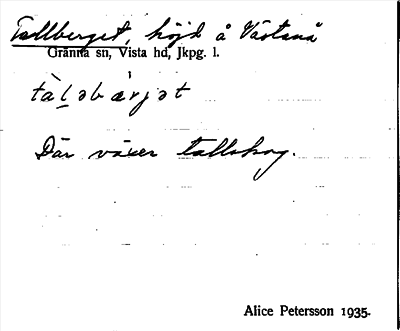 Tallberget, höjd å Västanå
Gränna sn, Vista hd, Jkpg. l.
tàḷəbærjət
Där växer tallskog.
Alice Petersson 1935.